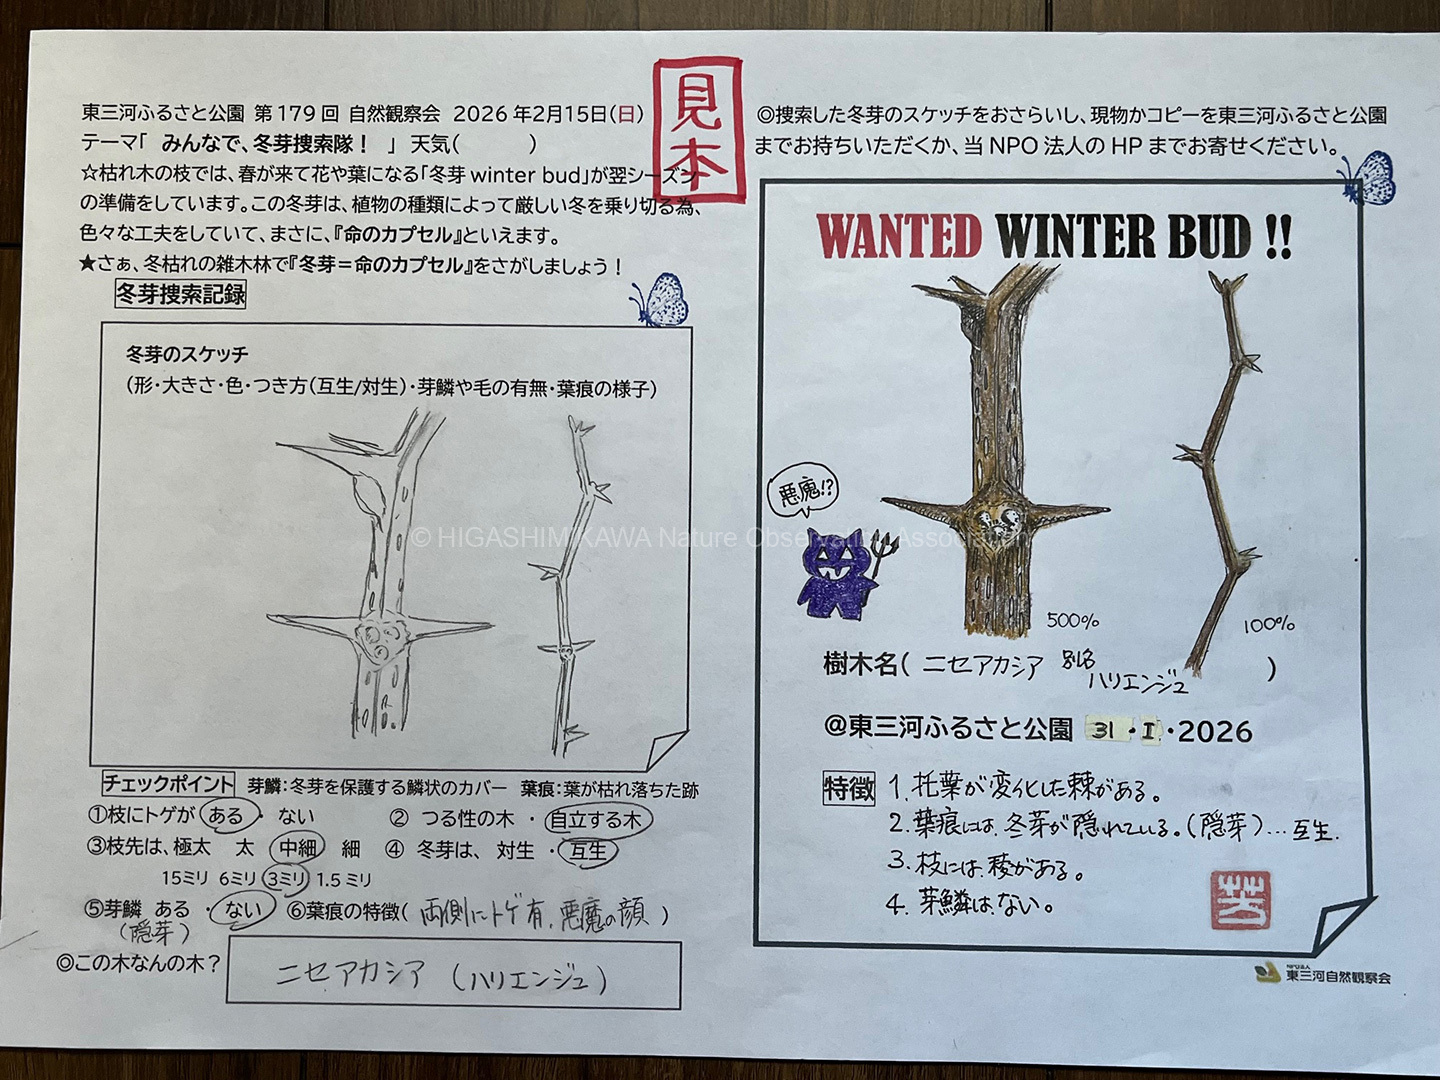 東三河ふるさと公園 第179回 自然観察会 2026年2月15日(日)
テーマ「 みんなで、冬芽捜索隊！ 」 天気( )
☆枯れ木の枝では、春が来て花や葉になる「冬芽 winter bud」が翌シーズン
の準備をしています。この冬芽は、植物の種類によって厳しい冬を乗り切る為、
色々な工夫をしていて、まさに、『命のカプセル』といえます。
★さぁ、冬枯れの雑木林で『冬芽＝命のカプセル』をさがしましょう！
見本
冬芽捜索記録
冬芽のスケッチ
(形・大きさ・色・つき方(互生/対生)・芽鱗や毛の有無・葉痕の様子)
チェックポイント 芽鱗：冬芽を保護する鱗状のカバー 葉痕：葉が枯れ落ちた跡
①枝にトゲが ある ・ ない ② つる性の木 ・ 自立する木
③枝先は、極太 太 中細 細 ④ 冬芽は、 対生 ・ 互生
15ミリ 6ミリ 3ミリ 1.5ミリ
⑤芽鱗 ある ・ ない ⑥葉痕の特徴( 両側にトゲ有、悪魔の顔 )
(隠芽)
◎この木なんの木？ ニセアカシア (ハリエンジュ)
◎捜索した冬芽のスケッチをおさらいし、現物かコピーを東三河ふるさと公園
までお持ちいただくか、当NPO法人のHPまでお寄せください。
WANTED WINTER BUD !!
悪魔!?
500%
100%
樹木名( ニセアカシア 別名
ハリエンジュ )
@東三河ふるさと公園 31・I・2026
特徴 1. 托葉が変化した棘がある。
2. 葉痕には、冬芽が隠れている。(隠芽)…互生.
3. 枝には、稜がある。
4. 芽鱗は、ない。
NPO法人
東三河自然観察会
© HIGASHIMIKAWA Nature Observation Association